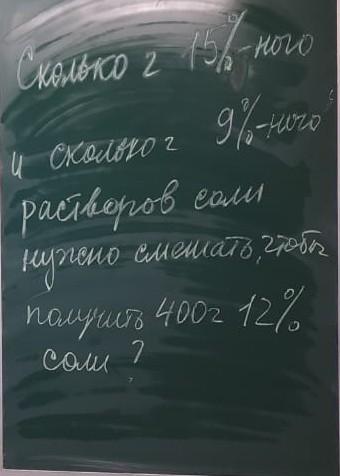 Сколько г 15%-ного
и сколько г 9%-ного
растворов соли
нужно смешать, чтобы
получить 400г 12%
соли?